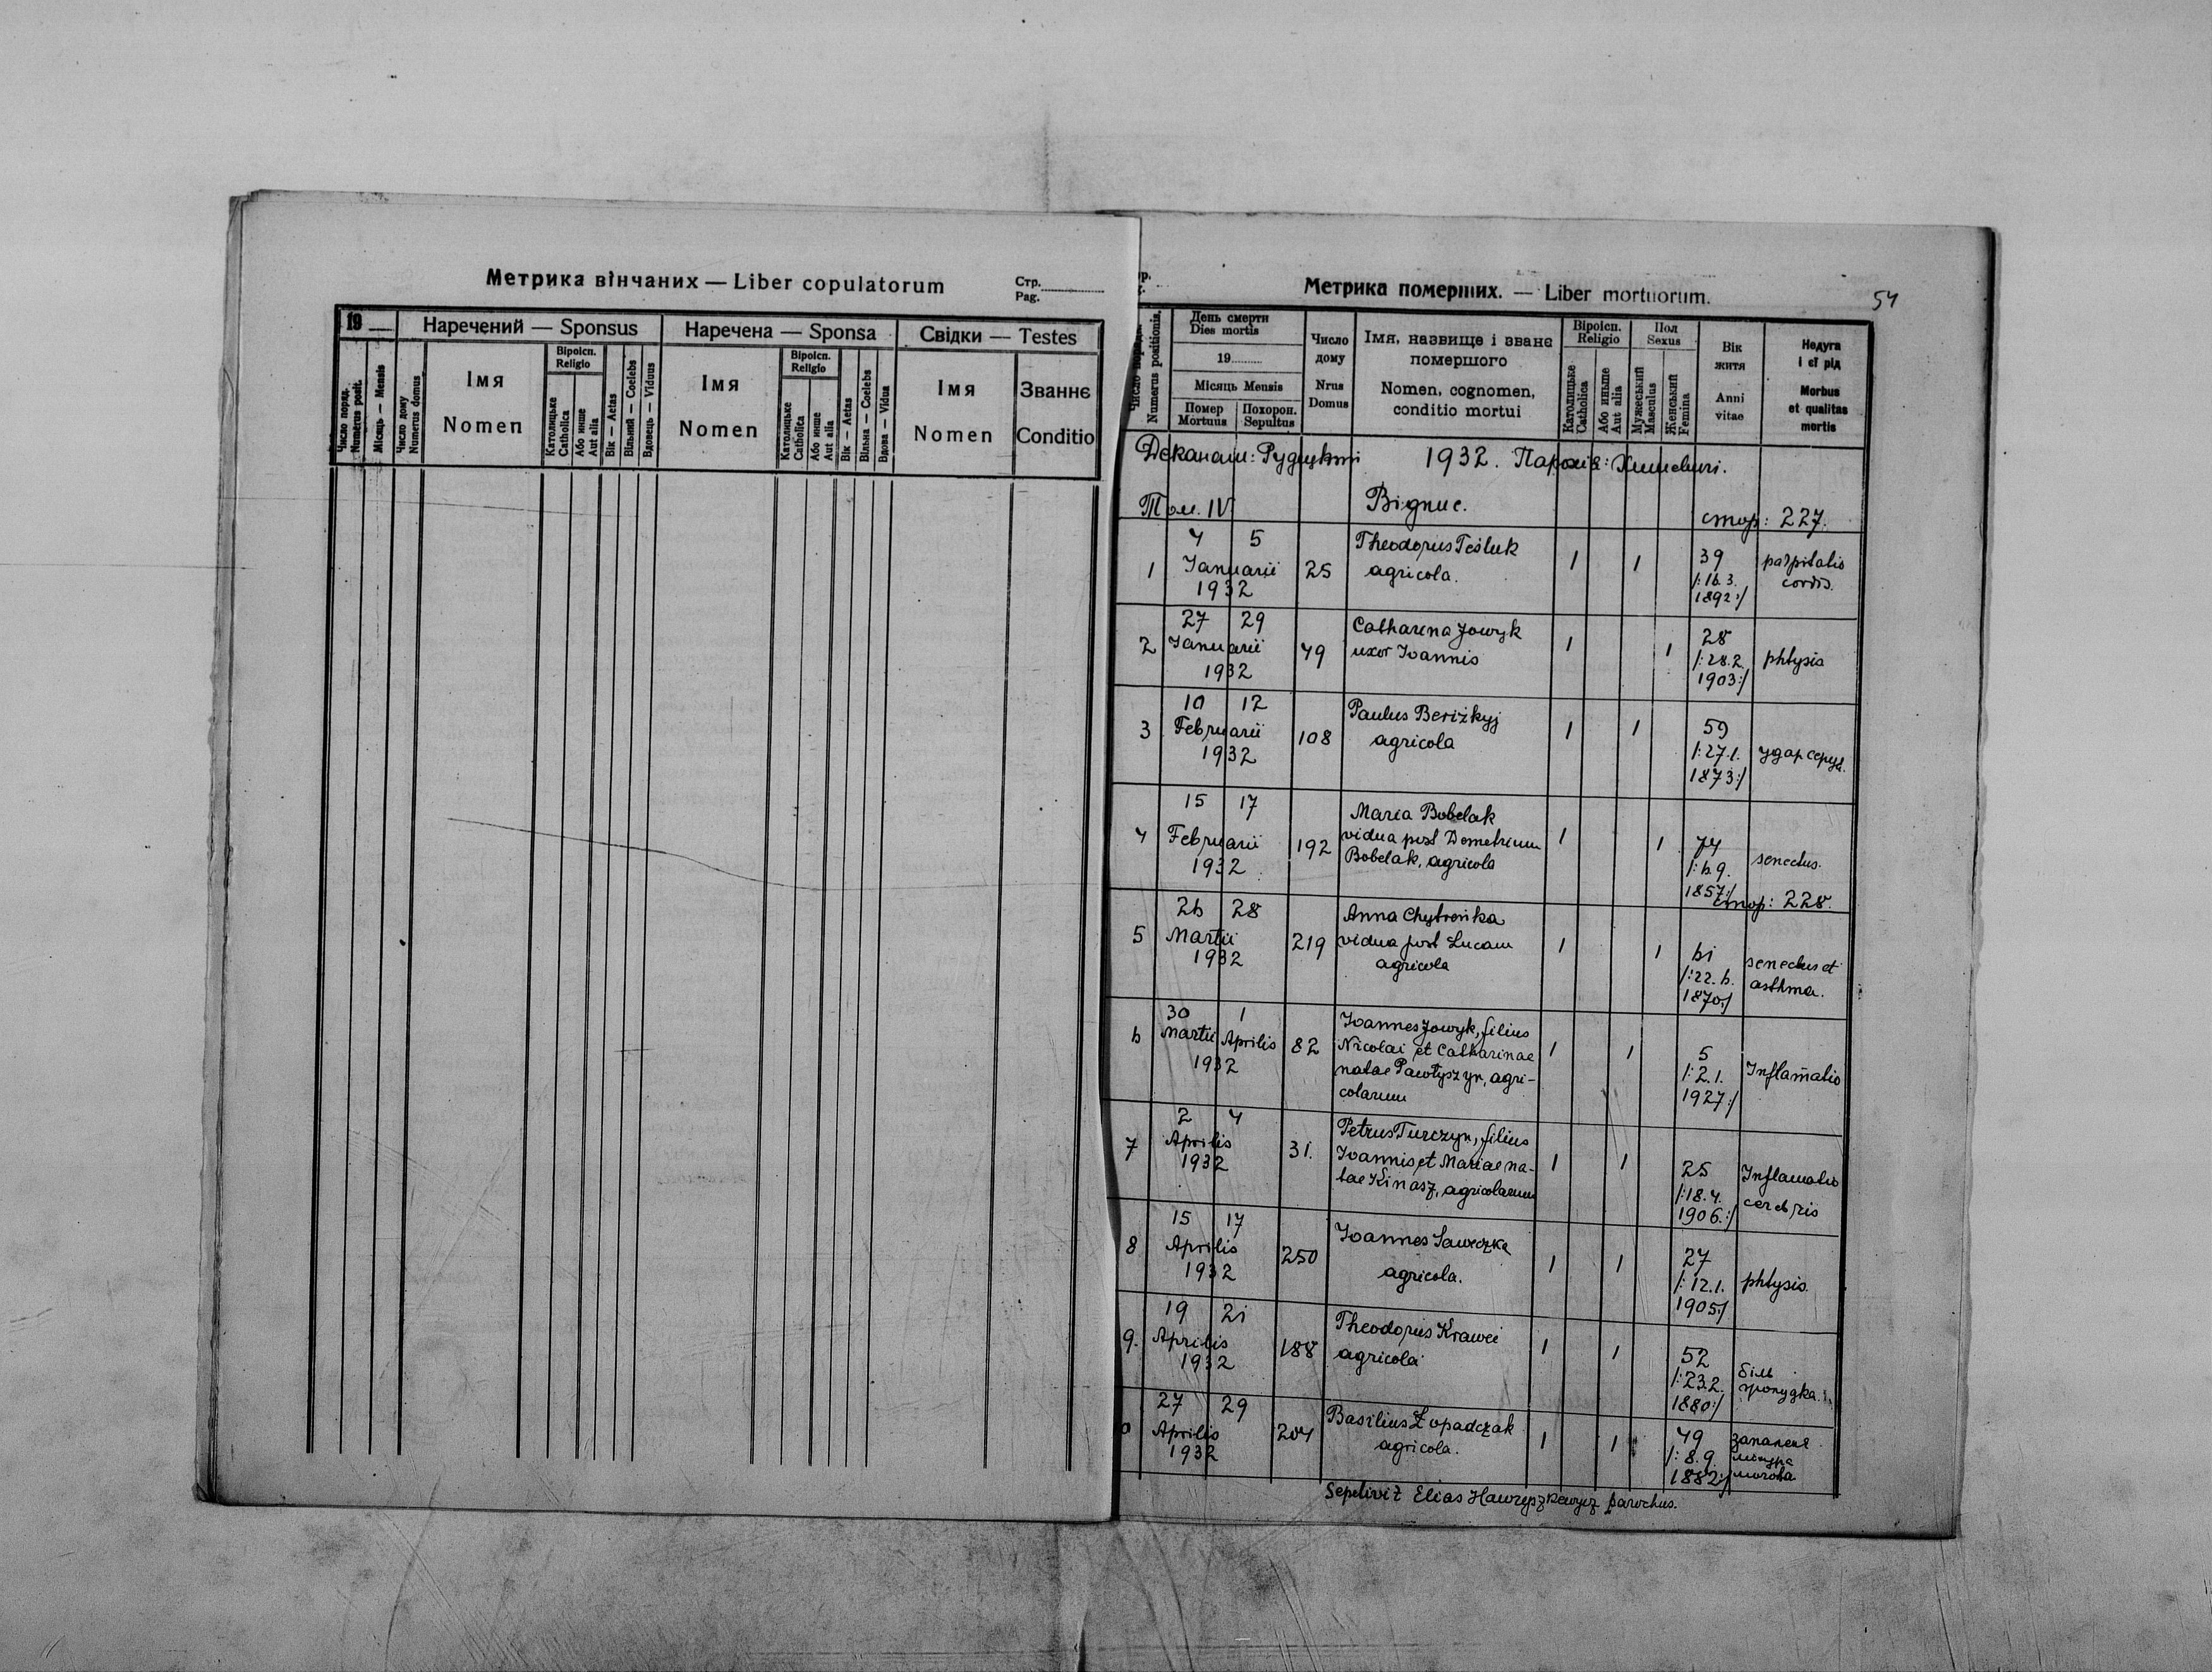 Метрика вінчаних — Liber copulatorum
Стр.
Pag.
19
Наречений — Sponsus
Наречена — Sponsa
Свідки — Testes
Число поряд.
Numerus posit.
Місяць — Mensis
Число дому
Numerus domus
Імя
Nomen
Віроісп.
Religio
Католицьке
Catholica
Або инше
Aut alia
Вік — Aetas
Вільний — Coelebs
Вдовець — Viduus
Імя
Nomen
Віроісп.
Religio
Католицьке
Catholica
Або инше
Aut alia
Вік — Aetas
Вільна — Coelebs
Вдова — Vidua
Імя
Nomen
Званнє
Conditio
Метрика померших. — Liber mortuorum.
54
Numerus positionis.
День смерти
Dies mortis
19
Місяць Mensis
Помер
Mortuus
Похорон.
Sepultus
Число
дому
Nrus
Domus
Імя, назвище і званє
помершого
Nomen, cognomen,
conditio mortui
Віроісп.
Religio
Католицьке
Catholica
Або инше
Aut alia
Пол
Sexus
Мужеський
Masculus
Женський
Femina
Вік
житя
Anni
vitae
Недуга
і єї рід
Morbus
et qualitas
mortis
Деканат: Рудецький 1932. Парохія:
Том. IV Відпис. стор: 227.
1 4 5 Januarii 1932 25 Theodorus Teśluk agricola. 1 1 39 /:16.3. 1892:/ palpitatio cordis.
2 27 29 Januarii 1932 49 Catharina Jowyk uxor Joannis 1 1 28 /:28.2. 1903:/ phtysis
3 10 12 Februarii 1932 108 Paulus Beriżkyj agricola 1 1 59 /:27.1. 1873:/ удар серця.
4 15 17 Februarii 1932 192 Maria Bobelak vidua post Demetrium Bobelak, agricola 1 1 74 /:6.9. 1857:/ senectus.
стор: 228.
5 26 28 Martii 1932 219 Anna Chytreńka vidua post Lucam agricola 1 1 61 /:22.6. 1870:/ senectus et asthma.
6 30 1 Martii Aprilis 1932 82 Joannes Jowyk, filius Nicolai et Catharinae natae Pawłyszyn, agricolarum 1 1 5 /:2.1. 1927:/ Inflam̄atio
7 2 4 Aprilis 1932 31. Petrus Turczyn, filius Joannis et Mariae natae Kinasz, agricolarum 1 1 25 /:18.4. 1906.:/ Inflamatio cerebris
8 15 17 Aprilis 1932 250 Joannes Saweczka agricola. 1 1 27 /:12.1. 1905:/ phtysis.
9. 19 21 Aprilis 1932 188 Theodorus Kraweć agricola 1 1 52 /:23.2. 1880:/ біль жолудка
0 27 29 Aprilis 1932 204 Basilius Łopadczak agricola. 1 1 49 /:8.9. 1882:/ запаленя
Sepelivit Elias Hawryszkewycz parochus.